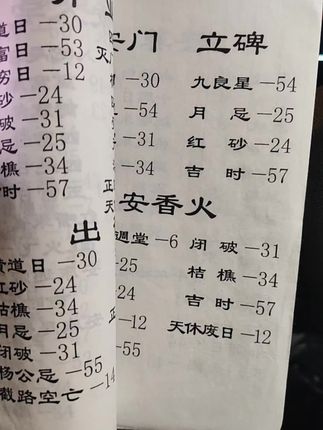 道日—30
富日—53
穷日—12
砂—24
破—31
忌—25
樵—34
时—57
出
黄道日—30
红砂—24
枯樵—34
月忌—25
闭破—31
杨公忌—55
截路空亡—14
安门 立碑
—30 九良星—54
—54 月忌—25
—31 红砂—24
—34 吉时—57
安香火
周堂—6 闭破—31
—25 桔樵—34
—24 吉时—57
—12 天休废日—12
—55